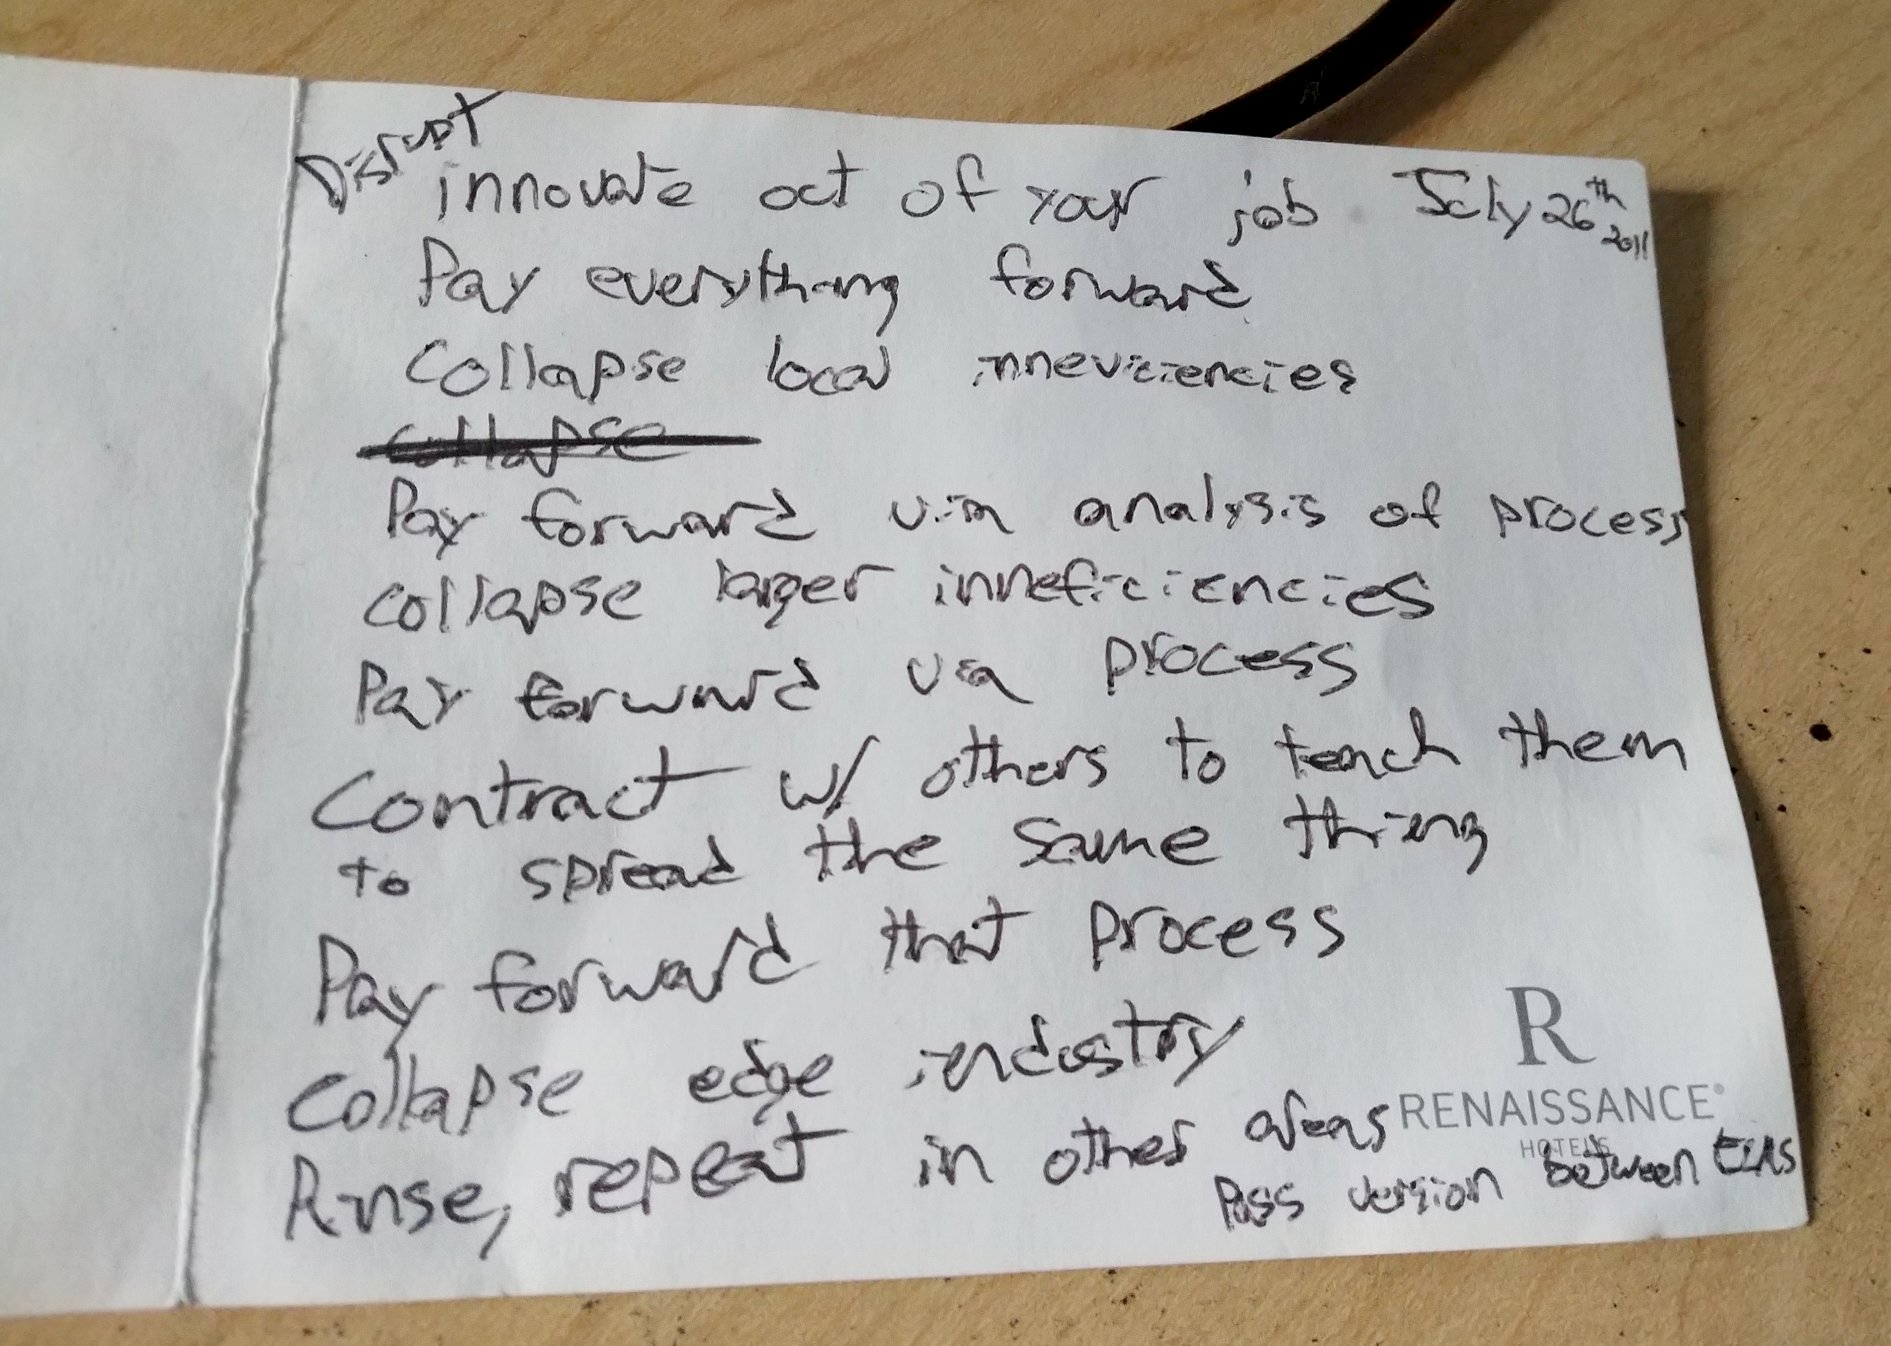 Disrupt
innovate out of your job July 26th 2011
Pay everything forward
Collapse local inneviciencies
collapse
Pay forward via analysis of process
collapse larger inneficiencies
Pay forward via process
Contract w/ others to teach them
to spread the same thing
Pay forward that process
Collapse edge industry
Rinse, repeat in other areas
Pass version between
R
RENAISSANCE®
HOTELS